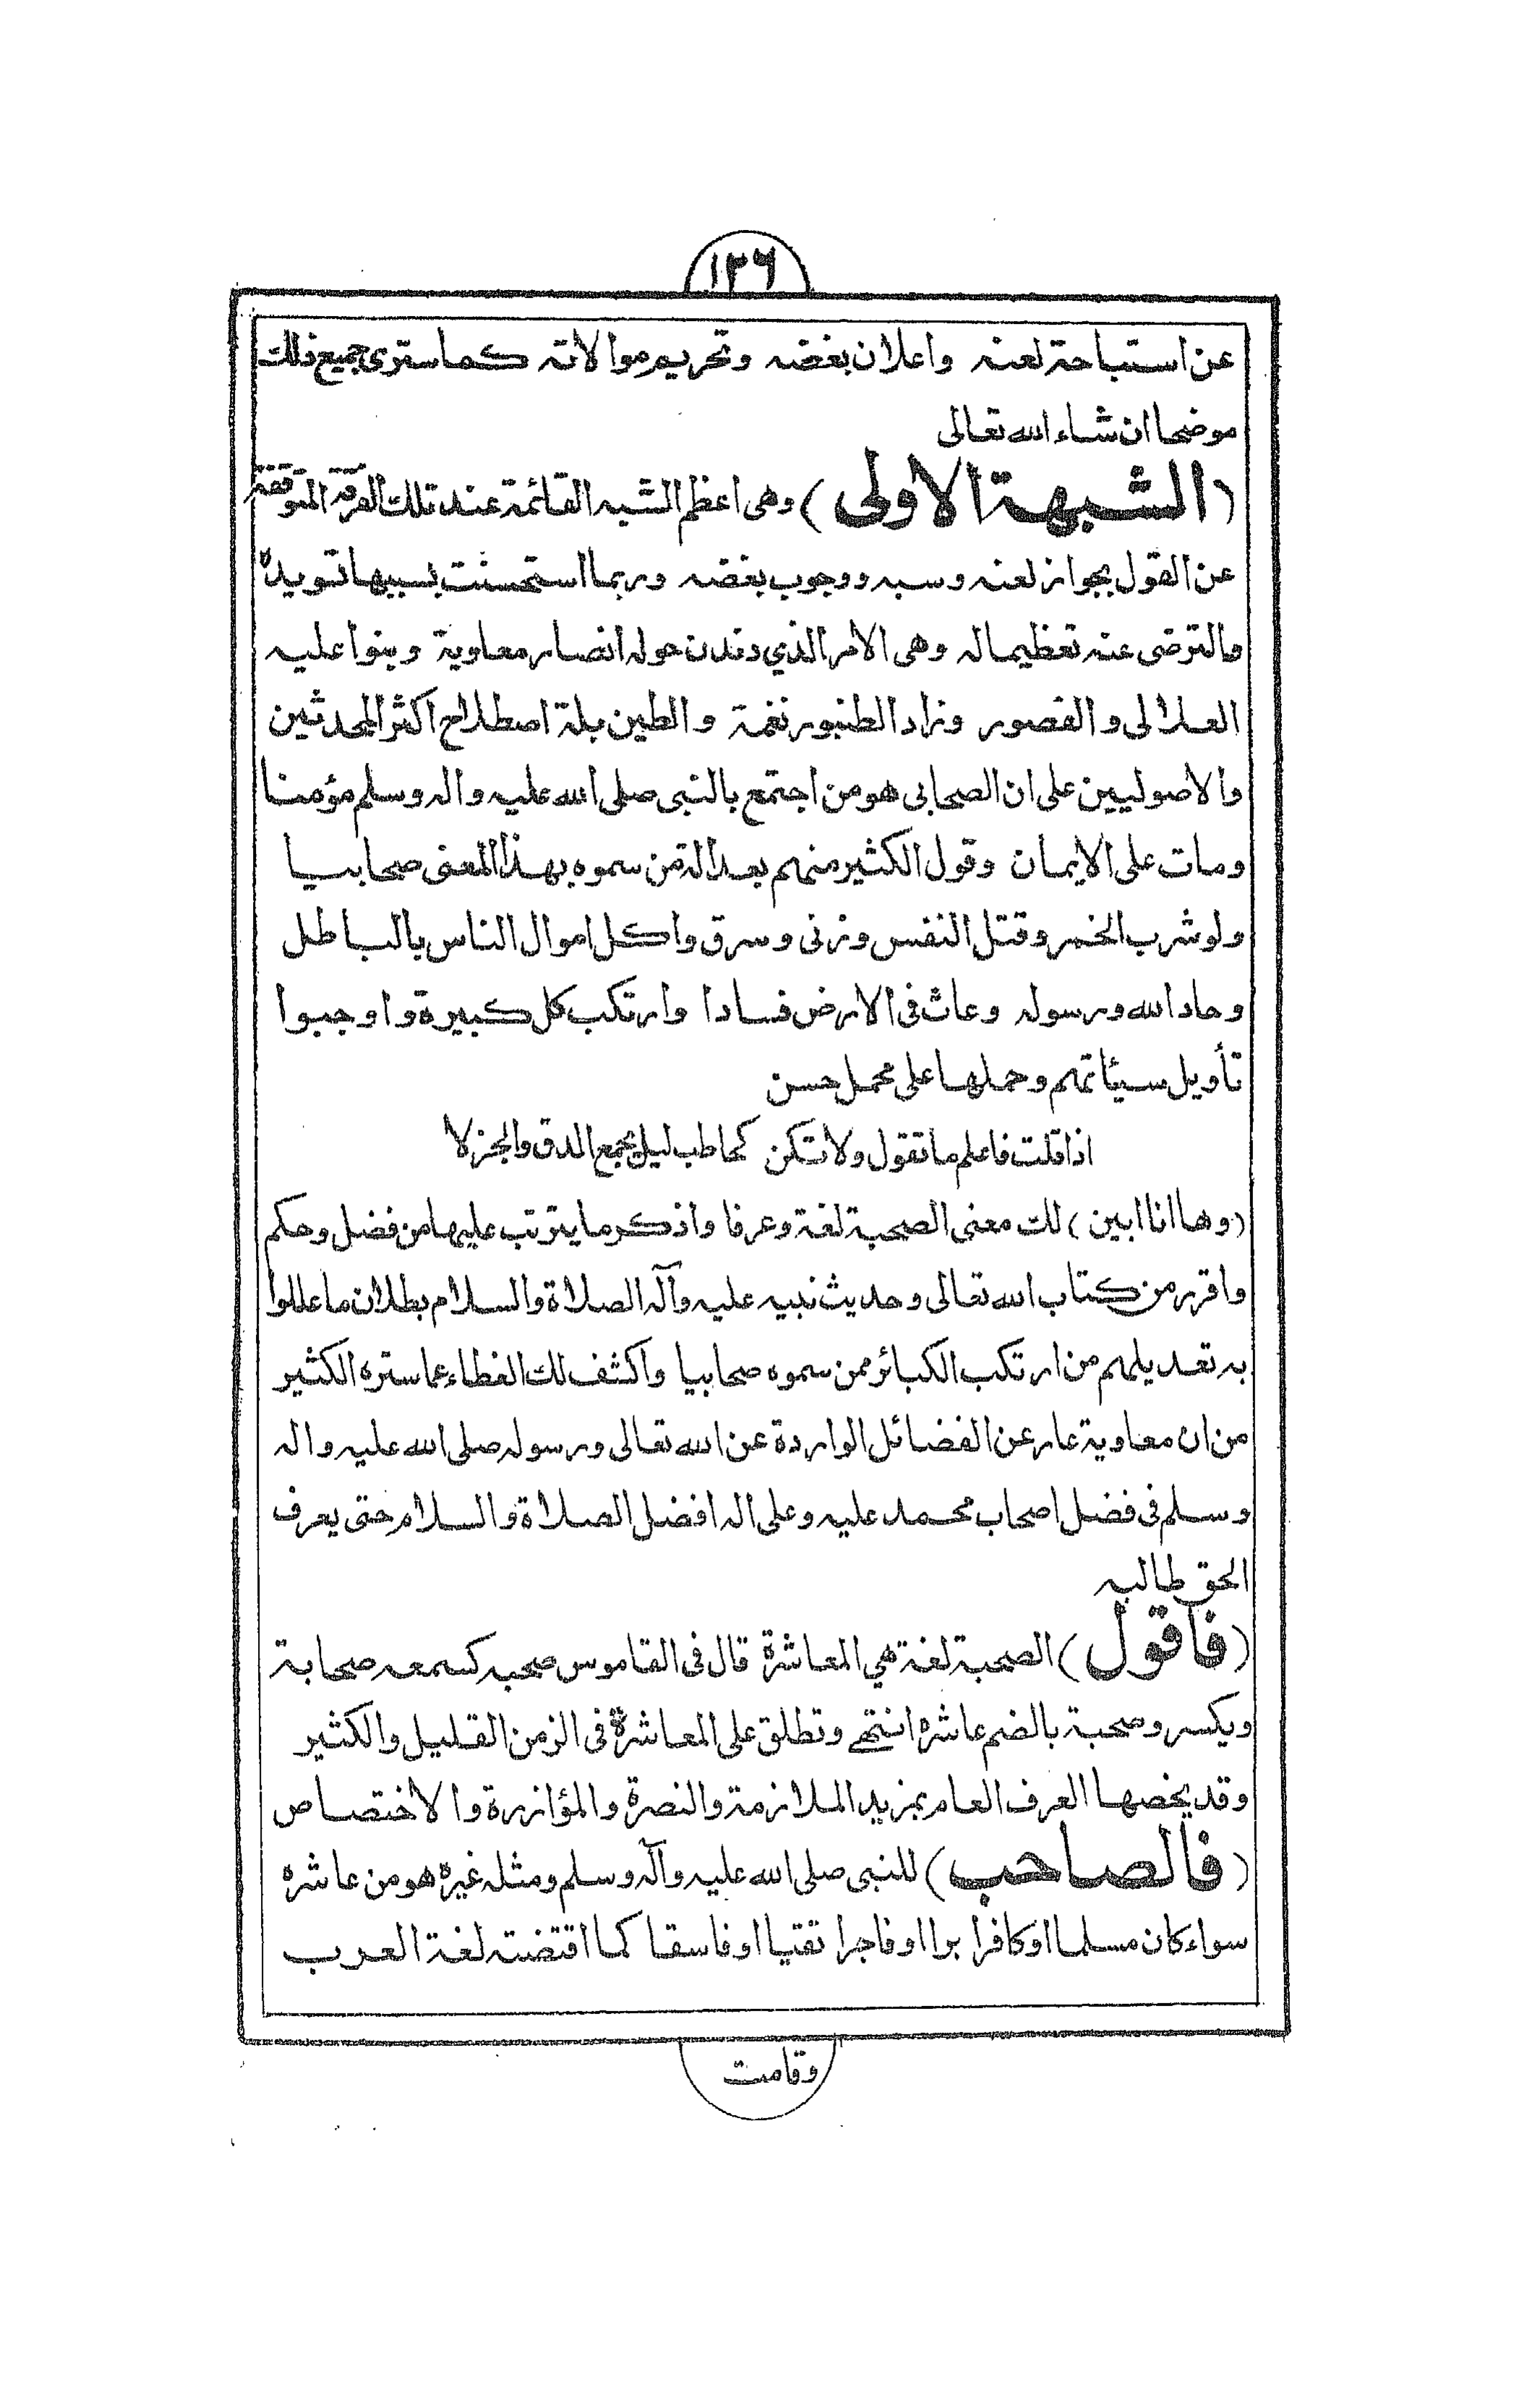 ١٣٦
عن استباحة لعنه واعلان بغضه وتحريم موالاته كما سترى جميع ذلك
موضحا ان شاء الله تعالى
(الشبهة الاولى) وهى اعظم الشبه القائمة عند تلك الفرقة المتوقفة
عن القول بجواز لعنه وسبه ووجوب بغضه وربما استحسنت بسببها تسويده
والترضى عنه تعظيما له وهى الامر الذي دندن حوله انصار معاوية وبنوا عليه
العلالى والقصور وزاد الطنبور نغمة والطين بلة اصطلاح اكثر المحدثين
والاصوليين على ان الصحابى هو من اجتمع بالنبى صلى الله عليه واله وسلم مؤمنا
ومات على الايمان وقول الكثير منهم بعدالة من سموه بهذا المعنى صحابيا
ولو شرب الخمر وقتل النفس وزنى وسرق واكل اموال الناس بالباطل
وحاد الله ورسوله وعاث فى الارض فسادا وارتكب كل كبيرة واوجبوا
تأويل سيئاتهم وحملها على محمل حسن
اذا قلت فاعلم ما تقول ولا تكن كحاطب ليل يجمع الدق والجزلا
(وها انا ابين) لك معنى الصحبة لغة وعرفا واذكر ما يترتب عليها من فضل وحكم
واقرر من كتاب الله تعالى وحديث نبيه عليه وآله الصلاة والسلام بطلان ما عللوا
به تعديلهم من ارتكب الكبائر ممن سموه صحابيا واكشف لك الغطاء عما ستره الكثير
من ان معاوية عار عن الفضائل الواردة عن الله تعالى ورسوله صلى الله عليه واله
وسلم فى فضل اصحاب محمد عليه وعلى اله افضل الصلاة والسلام حتى يعرف
الحق طالبه
(فاقول) الصحبة لغة هي المعاشرة قال فى القاموس صحبه كسمعه صحابة
ويكسر وصحبة بالضم عاشره انتهى وتطلق على المعاشرة فى الزمن القليل والكثير
وقد يخصها العرف العام بمزيد الملازمة والنصرة والمؤازرة والاختصاص
(فالصاحب) للنبى صلى الله عليه وآله وسلم ومثله غيره هو من عاشره
سواء كان مسلما او كافرا برا او فاجرا تقيا او فاسقا كما اقتضته لغة العرب
وقامت